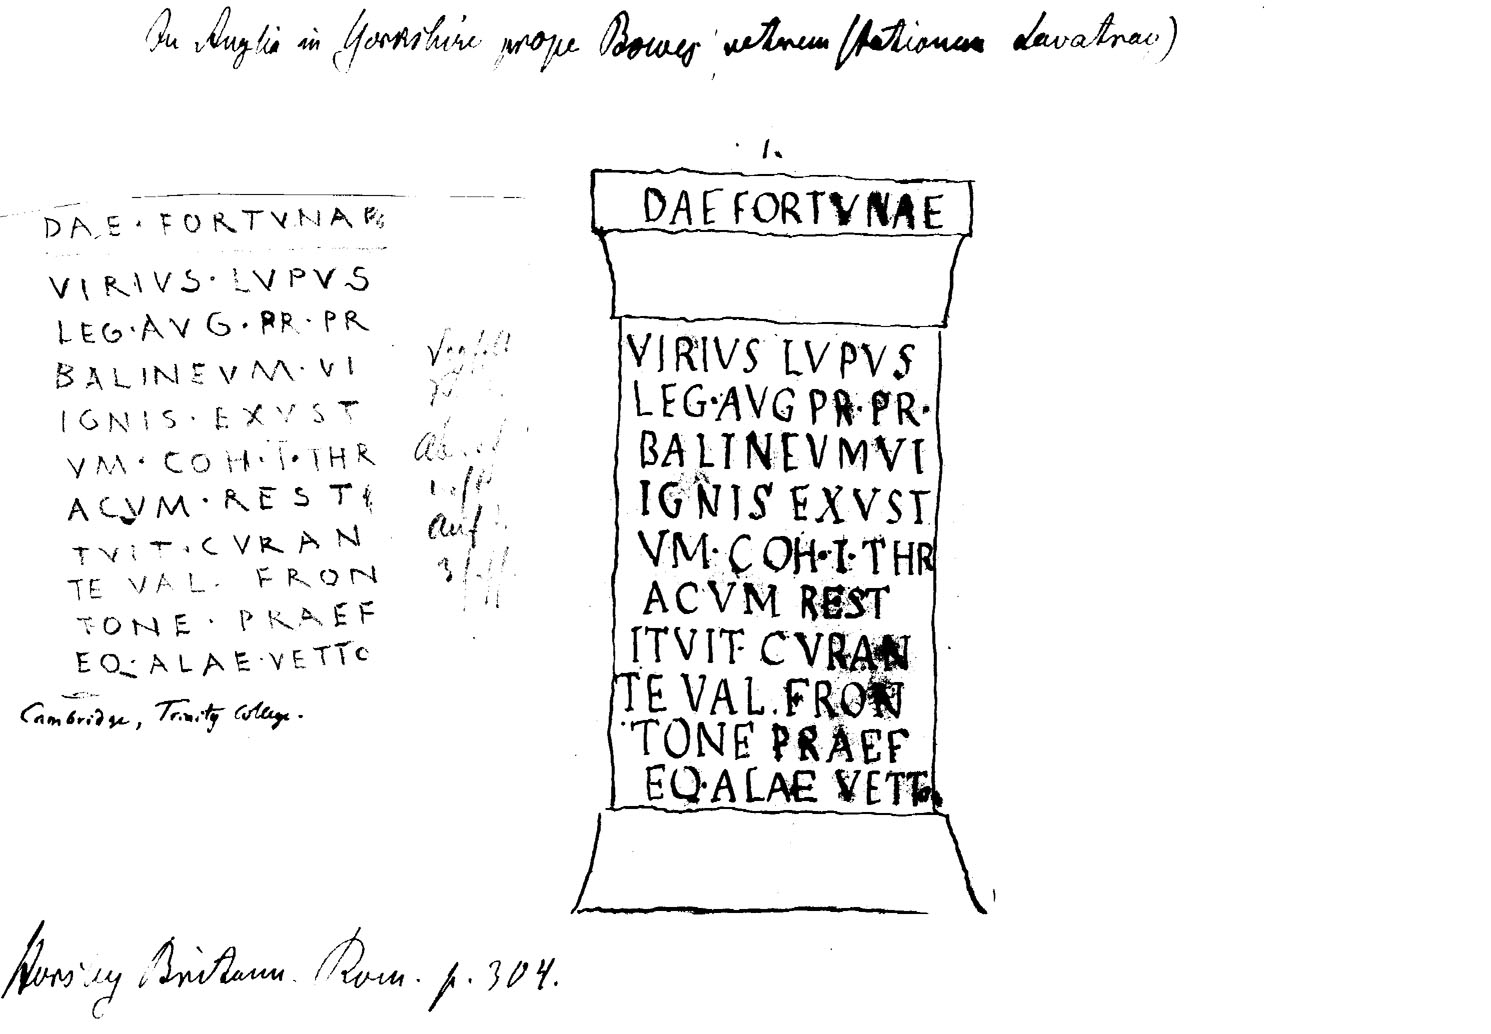 In Anglia in Yorkshire prope Bowes veterem stationem Lavatrae)
1.
DAE FORTVNAE
VIRIVS LVPVS
LEG·AVG PR·PR·
BALINEVM VI
IGNIS EXVST
VM·COH·I·THR
ACVM REST
ITVIT· CVRAN
TE VAL. FRON
TONE PRAEF
EQ·ALAE VETTO
DAE·FORTVNAE
VIRIVS·LVPVS
LEG·AVG·PR·PR
BALINEVM·VI
IGNIS·EXVST
VM·COH·I·THR
ACVM·RESTI
TVIT·CVRAN
TE VAL. FRON
TONE·PRAEF
EQ·ALAE·VETTO
auf
Cambridge, Trinity College.
Horsley Britann. Rom. p. 304.